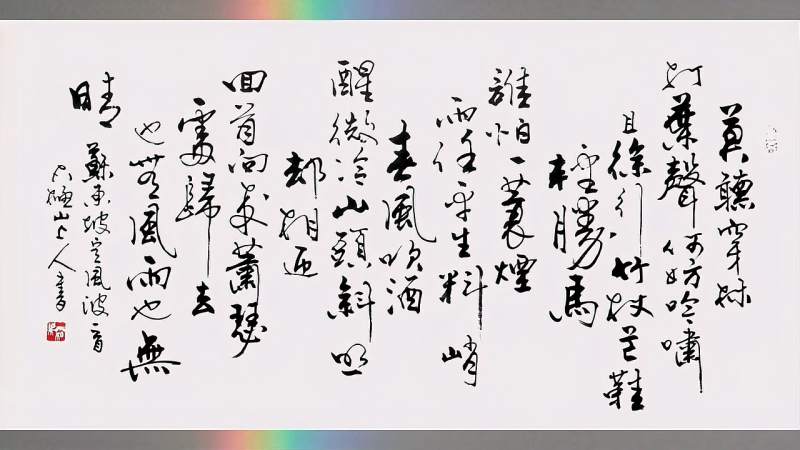 莫聽穿林
打葉聲何妨吟嘯
且徐行竹杖芒鞋
輕勝馬
誰怕一蓑煙
雨任平生料峭
春風吹酒
醒微冷山頭斜照
卻相迎
回首向來蕭瑟
處歸去
也無風雨也無
晴
蘇東坡定風波
山上人書